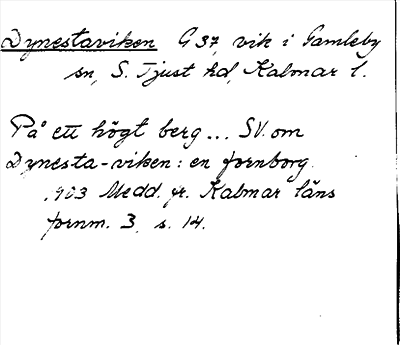 Dynestaviken G 37, vik i Gamleby
sn, S. Tjust hd, Kalmar l.
På ett högt berg... SV. om
Dynesta-viken: en fornborg.
1903 Medd. fr. Kalmar läns
fornm. 3, s. 14.